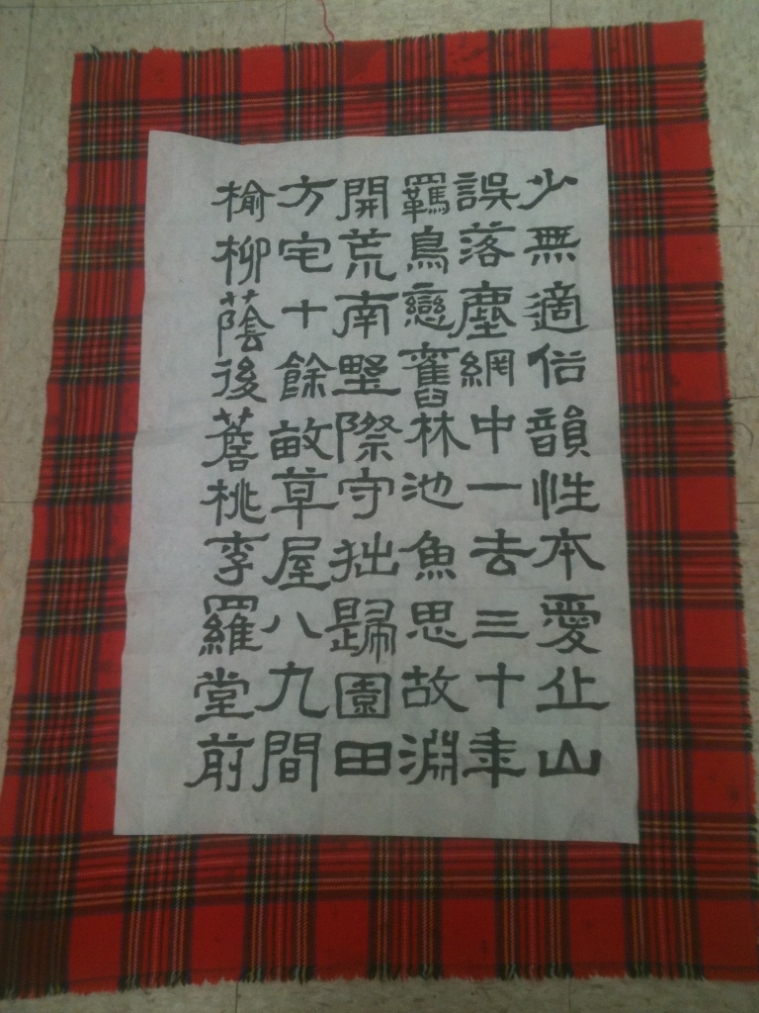 少無適俗韻性本愛丘山
誤落塵網中一去三十年
羈鳥戀舊林池魚思故淵
開荒南墅際守拙歸園田
方宅十餘畝草屋八九間
榆柳蔭後簷桃李羅堂前